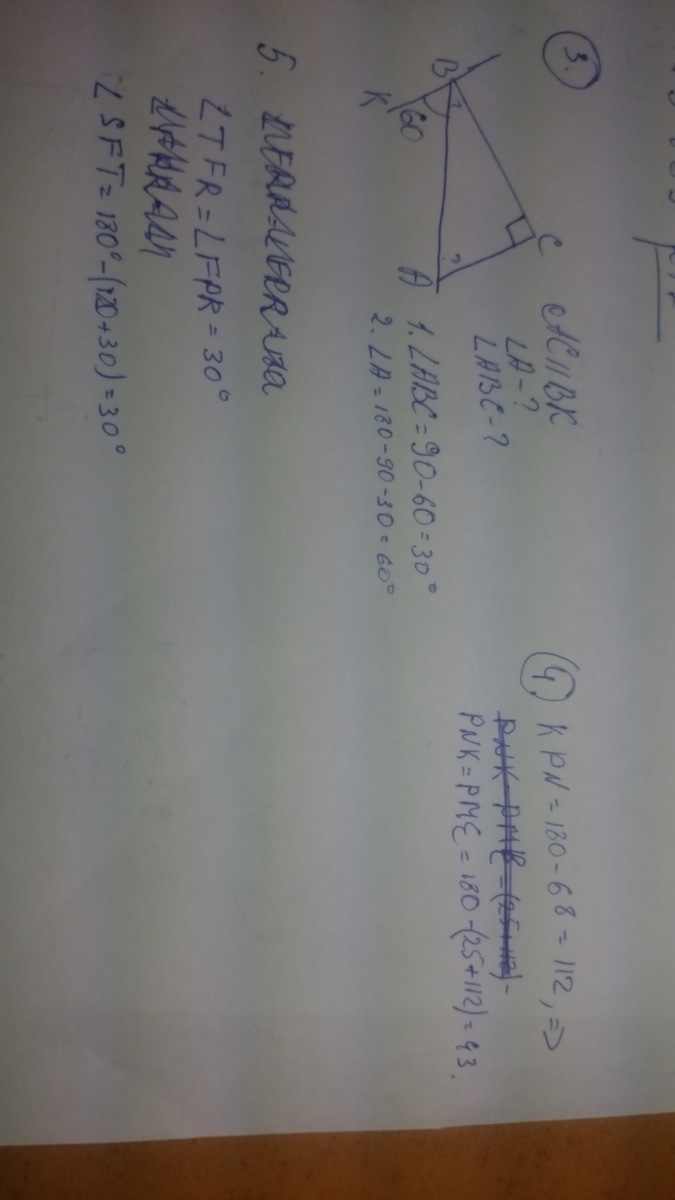 3.
B
C
K
60
?
A
AC||BK
∠A-?
∠ABC-?
1. ∠ABC=90-60=30°
2. ∠A=180-90-30=60°
4.
KPN=180-68=112, =>
PNK=PME=180-(25+112)=43.
5.
∠TFR=∠FPK=30°
∠SFT=180°-(120+30)=30°